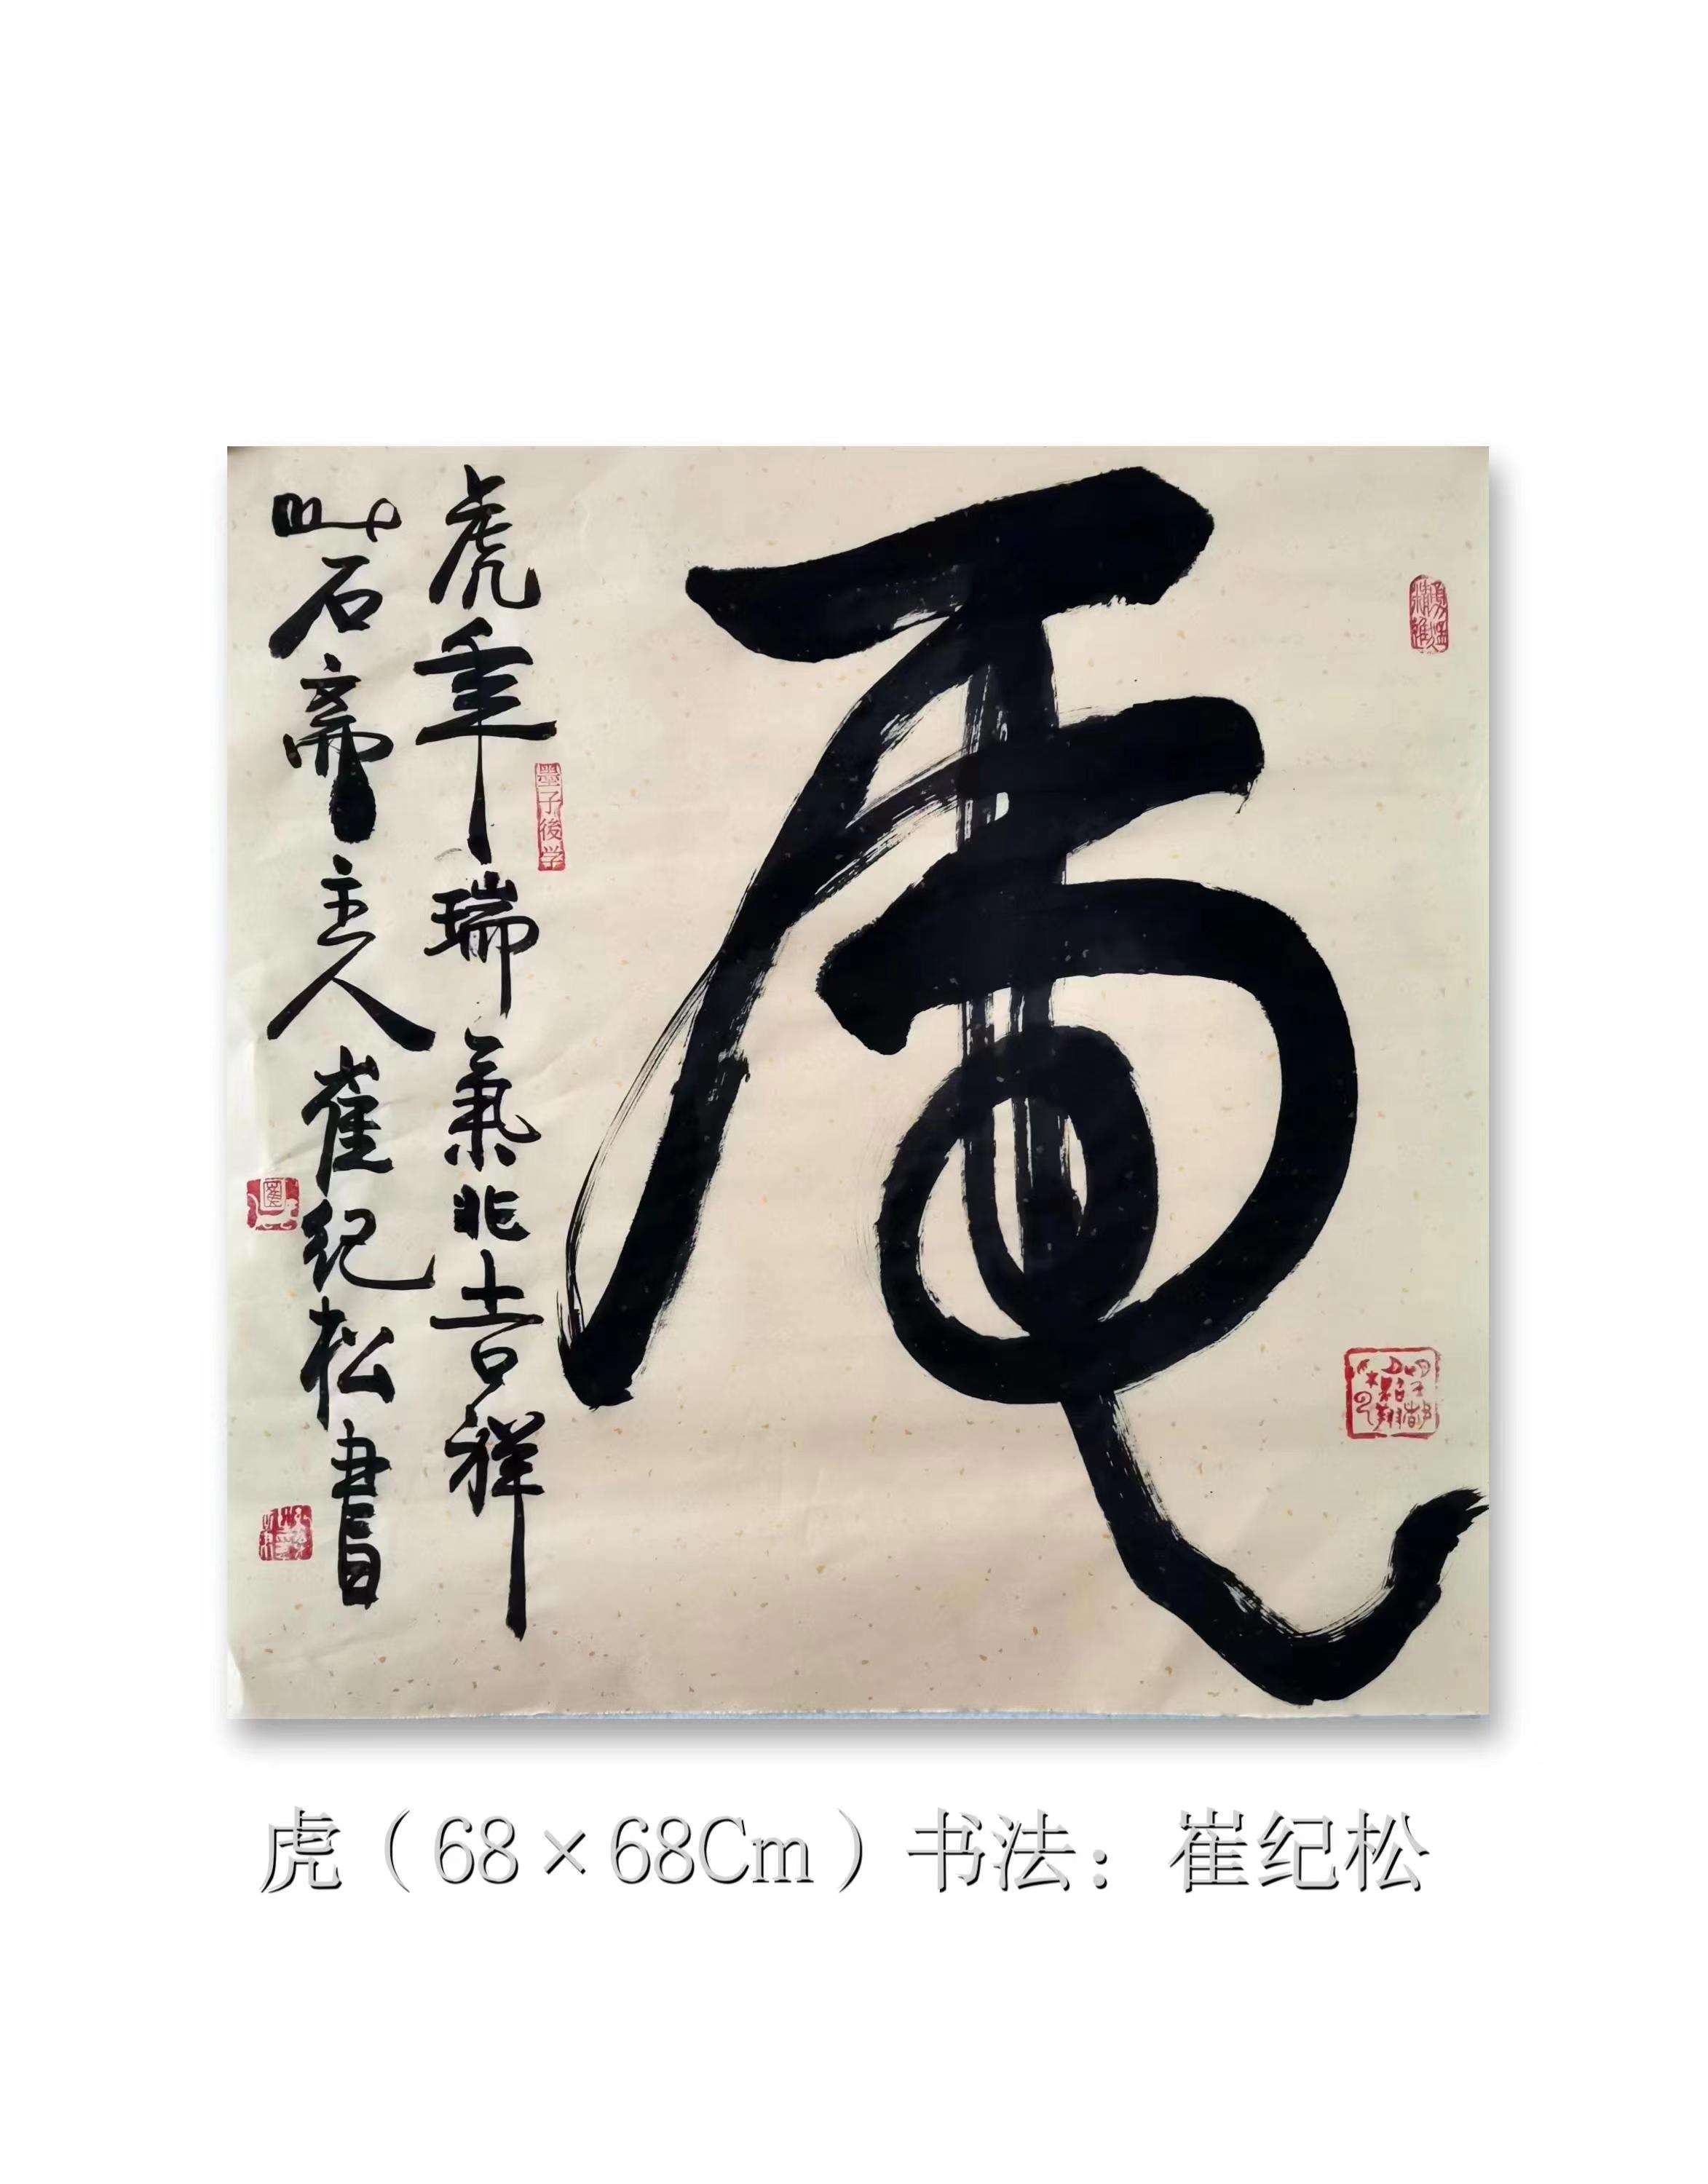 虎
虎年瑞氣兆吉祥
石斋主人崔纪松書
墨子後学
虎（68×68Cm）书法：崔纪松